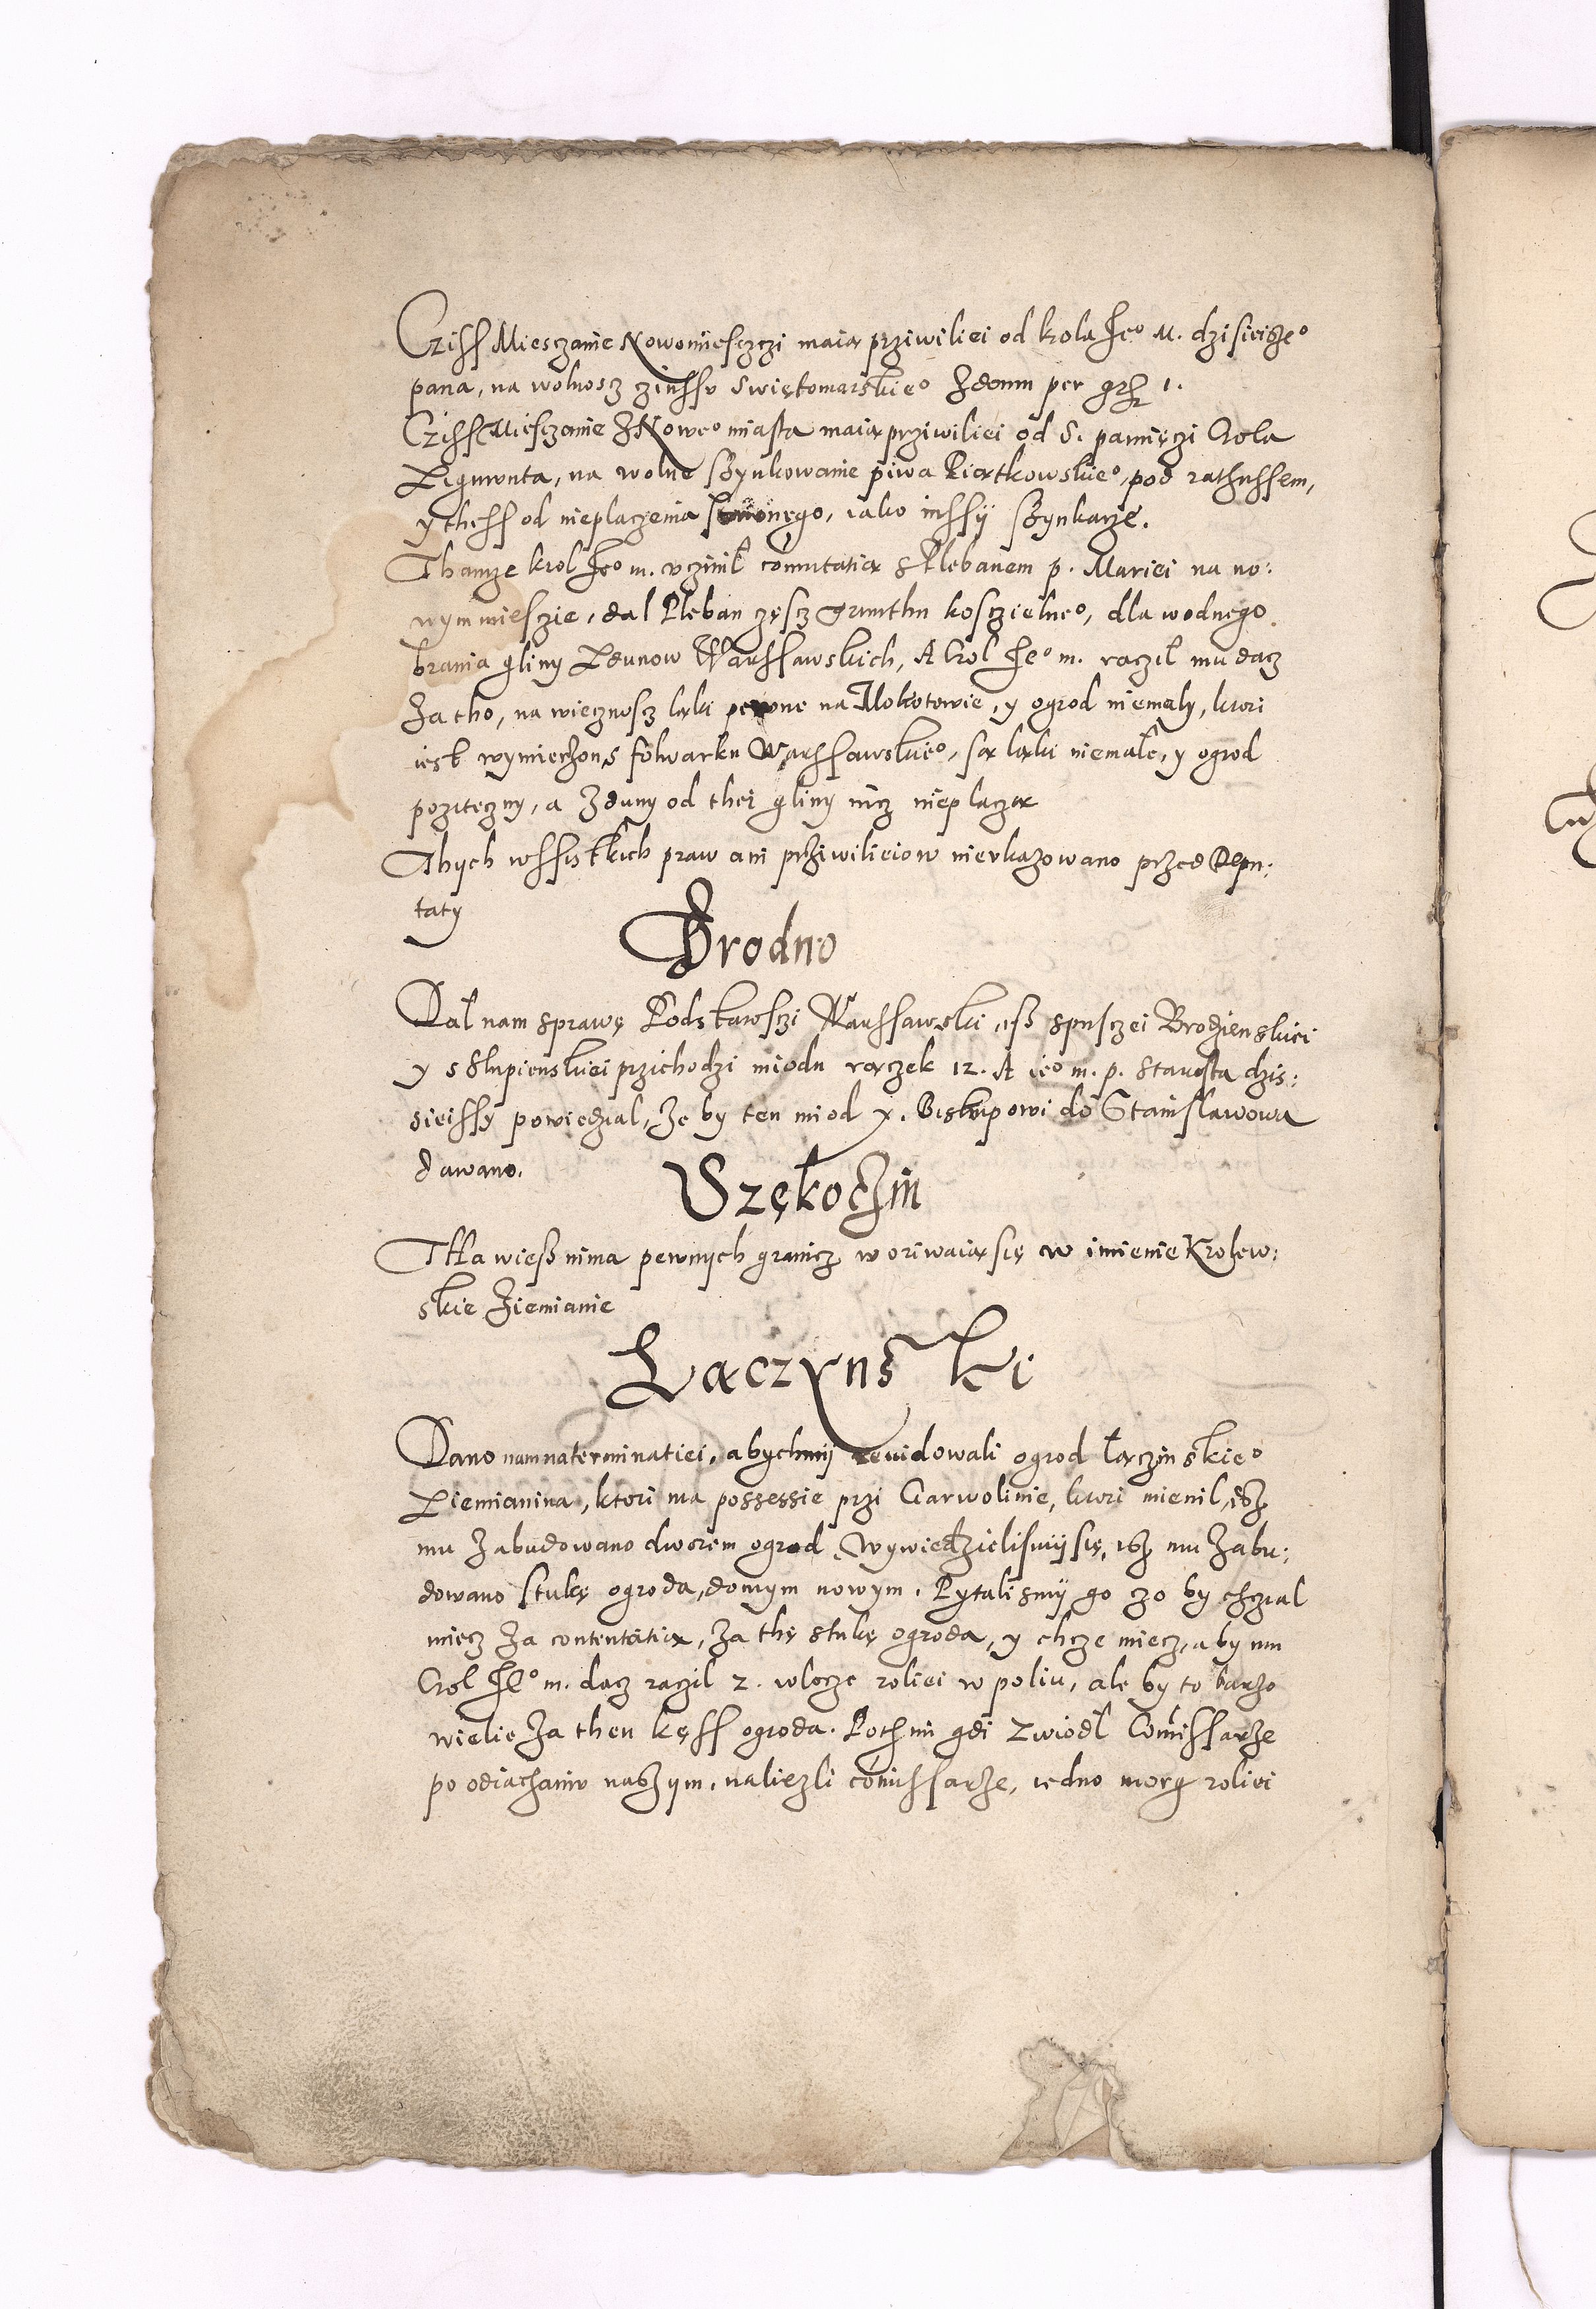 Cziss Miesczanie Nowomiesczczi maią prziwiliei od krola Jeo M. dzisieisẓeo
pana, na wolnosz zinssv Swiętomarskieo Zdomu per gr 1.
Cziss Miesczanie ZNoweo miasta maią prziwiliei od S. pamięczi Crola
Zigmvnta, na wolne szynkowanie piwa Piątkowskieo, pod rathussem,
y thess od nieplaczenia, iako inssÿ szynkarze.
Thamze krol Jeo m. vczinił comutatią s Plebanem p. Mariei na no:
wym miesczie, dal Pleban zęscz grunthu kosczielneo, dla wodnego
brania gliny Zdunow Warssawskich, A Crol Jeo m. raczil mu dacz
Za tho, na wiecznoscz ląki pewne na Mokotowie, y ogrod niemaly, ktori
iest wymierzon s folwarku Warssawskieo, są ląki niemałe, y ogrod
pozitezny, a Zduny od thei gliny nicz nieplaczą
Thych wssistkich praw ani prziwilieiow nievkazowano przed Depu:
taty
Brodno
Dał nam sprawę Podstarosczi Warssawski, iss spusczei Brodzienskiei
y s Slupienskiei przichodzi miodu rączek 12. A ieo m. p. Starosta dzis:
sieissy powiedzial, Ze by ten miod x. Biskupowi do Stanislawowa
dawano.
Szękoczin
Tha wiess nima pewnych granicz, woriwaią się w imienie Krolew:
skie Ziemianie
Lączynski
Dano nam na terminatiei, abychmÿ revidowali ogrod łączinskieo
Ziemianina, ktori ma possessie przi Garwolinie, ktori mienil, isz
mu Zabudowano dworem ogrod. Wywiedzielismÿ się, isz mu Zabu:
dowano stukę ogroda, domym nowym. Pytalismÿ go zo by chczial
miecz Za contentatią, Za thę stukę ogroda, y chcze miecz, aby mu
Crol Jeo m. dacz raczil 2. wlocze roliei w poliu, ale by to barzo
wielie Za then kęss ogroda. Pothim gdi zwiodł Comissarze
po odiachaniv naszym, nalieźli comissarze, iedno morg roliei